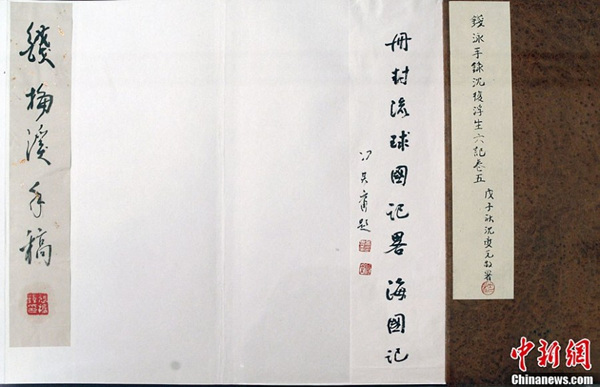 錢泳手錄沈復浮生六記卷五
戊子秋沈復元敬署
冊封流球國記畧 海國記
馮其庸題
錢梅溪手稿
中新網
Chinanews.com